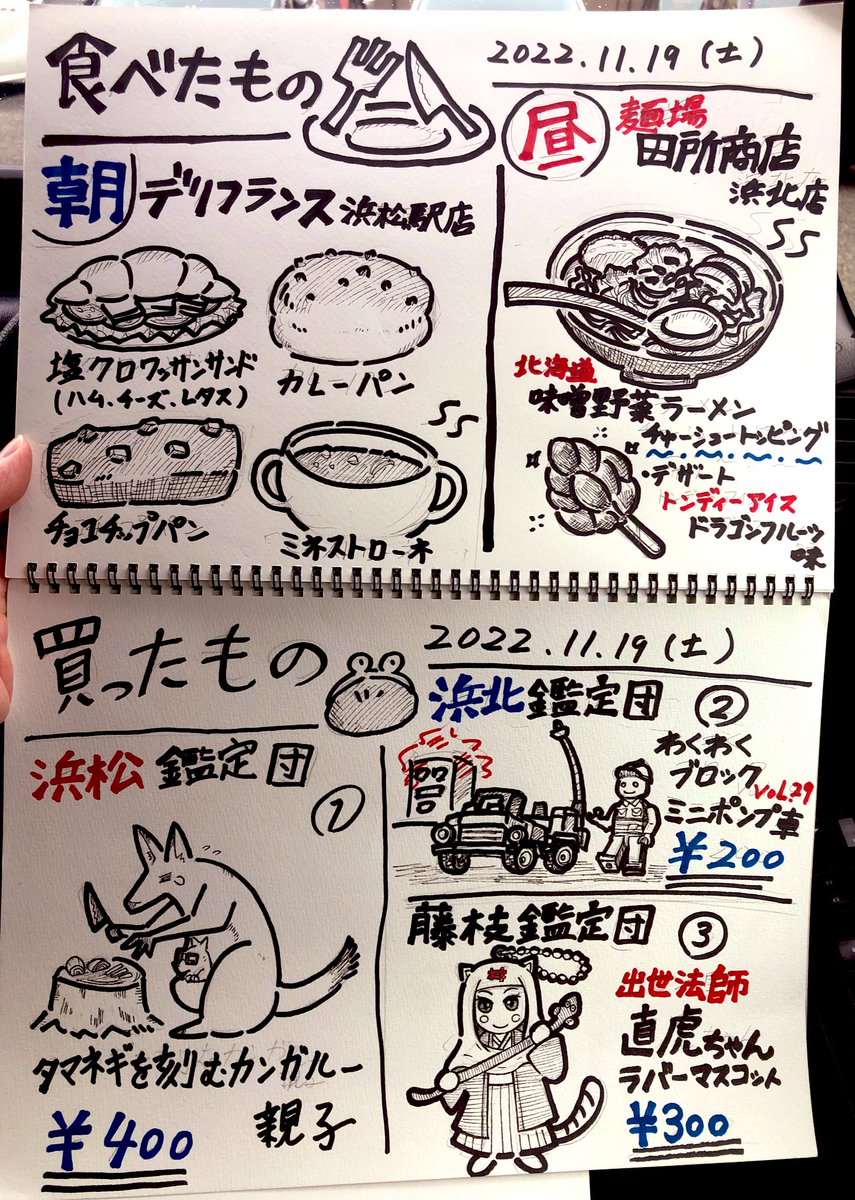 食べたもの
2022.11.19(土)
朝 デリフランス 浜松駅店
塩クロワッサンサンド
(ハム、チーズ、レタス)
カレーパン
チョコチップパン
ミネストローネ
昼 麺場
田所商店
浜北店
北海道
味噌野菜ラーメン
チャーシュートッピング
・デザート
トンディーアイス
ドラゴンフルーツ
味
買ったもの
2022.11.19(土)
浜松 鑑定団
①
タマネギを刻むカンガルー
親子
¥400
浜北 鑑定団 ②
わくわく
ブロック
VOL.29
ミニポンプ車
¥200
藤枝鑑定団 ③
出世法師
直虎ちゃん
ラバーマスコット
¥300